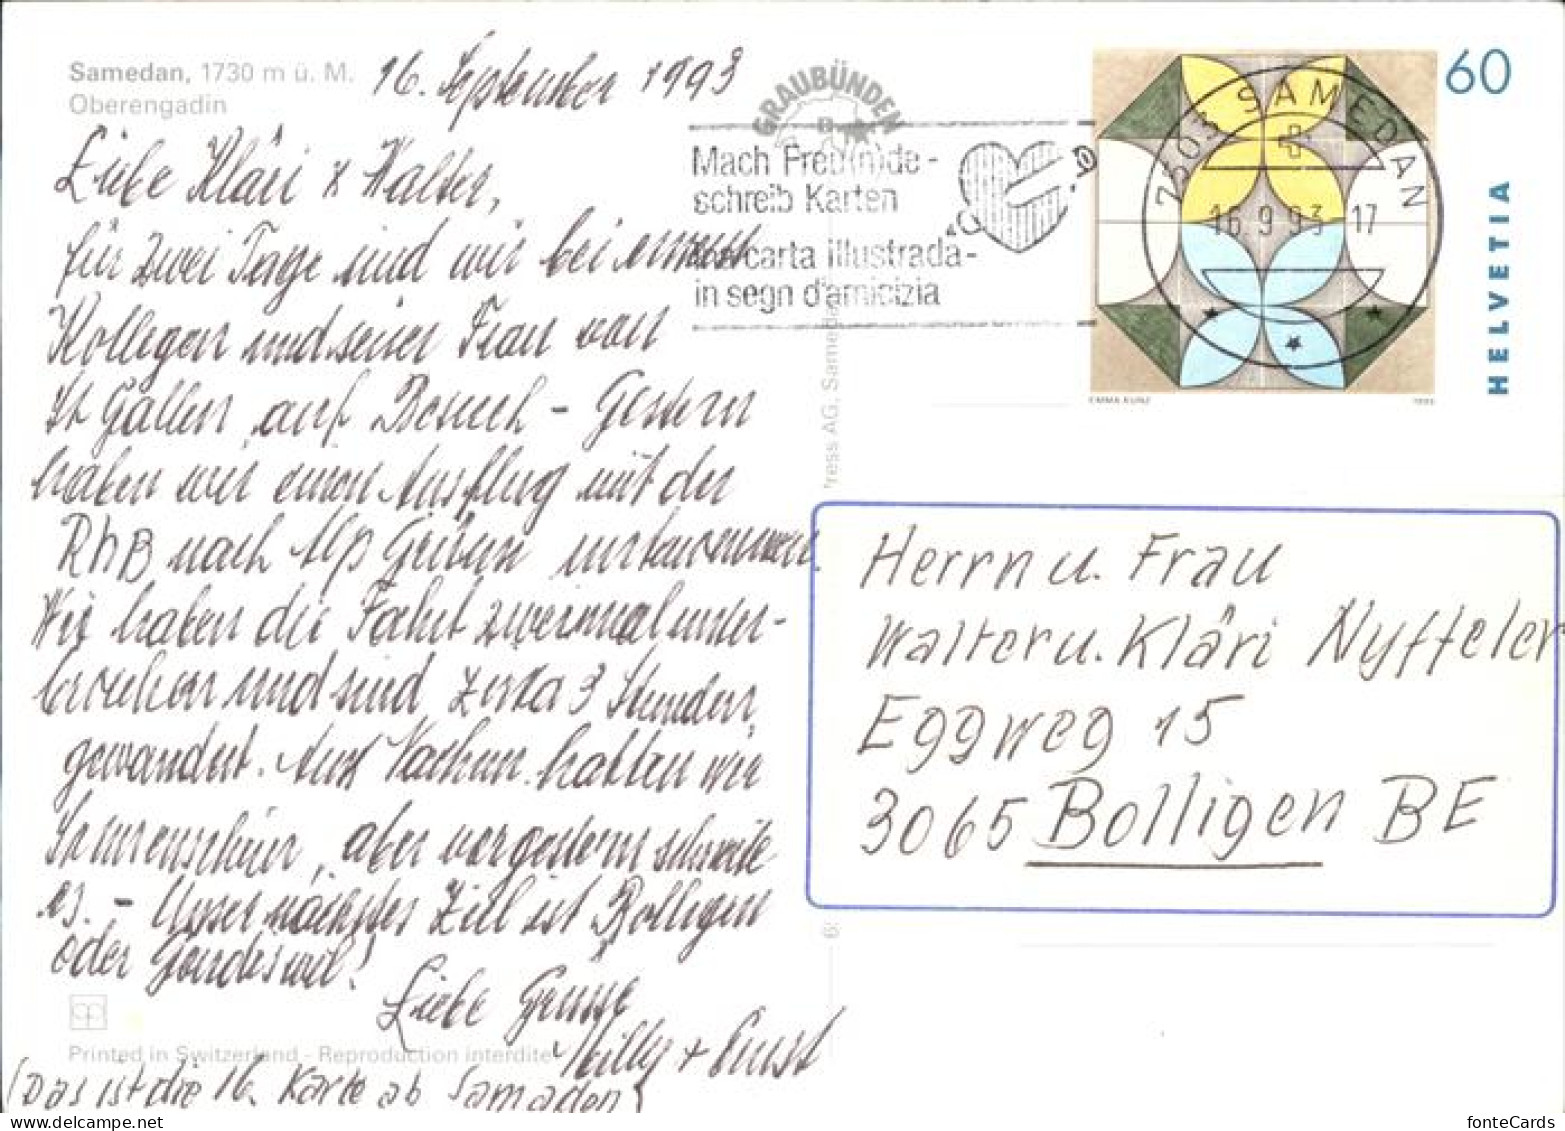 Samedan, 1730 m ü. M.
Oberengadin
16. September 1993
Liebe Kläri & Walter,
für zwei Tage sind wir bei einem
Kollegen und seiner Frau von
St Gallen auf Besuch - Gestern
haben wir einen Ausflug mit der
RhB nach Alp Grüm unternommen.
Wir haben die Fahrt zweimal unter-
brochen und sind zirka 3 Stunden
gewandert. Am haben hatten wir
Sonnenschein, aber vorgestern schneite
es. - Unser nächstes Ziel ist Bolligen
oder Gondiswil!
Liebe Grüsse
Willy + Ernst
(Das ist die 16. Karte ab Samaden)
Printed in Switzerland - Reproduction interdite
GRAUBÜNDEN
Mach Freu(n)de -
schreib Karten
carta illustrada -
in segn d'amicizia
7503 SAMEDAN
16.9.93 17
60
HELVETIA
EMMA KUNZ 1993
ress AG, Samedan
Herrn u. Frau
Walter u. Kläri Nyffeler
Eggweg 15
3065 Bolligen BE
delcampe.net
fonteCards